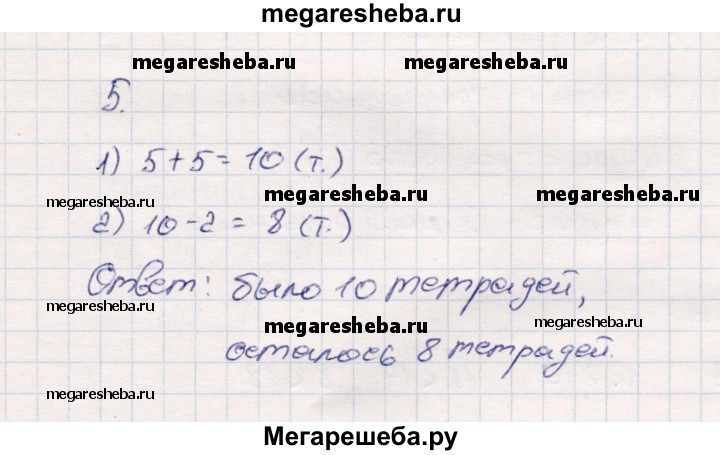 megaresheba.ru
megaresheba.ru megaresheba.ru
5.
1) 5+5=10 (т.)
megaresheba.ru megaresheba.ru megaresheba.ru
2) 10-2 = 8 (т.)
Ответ: было 10 тетрадей,
megaresheba.ru megaresheba.ru megaresheba.ru
осталось 8 тетрадей.
megaresheba.ru
Мегарешеба.ру